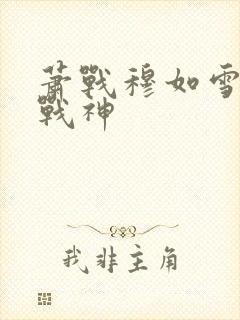 蕭戰穆如雪
戰神
我非主角